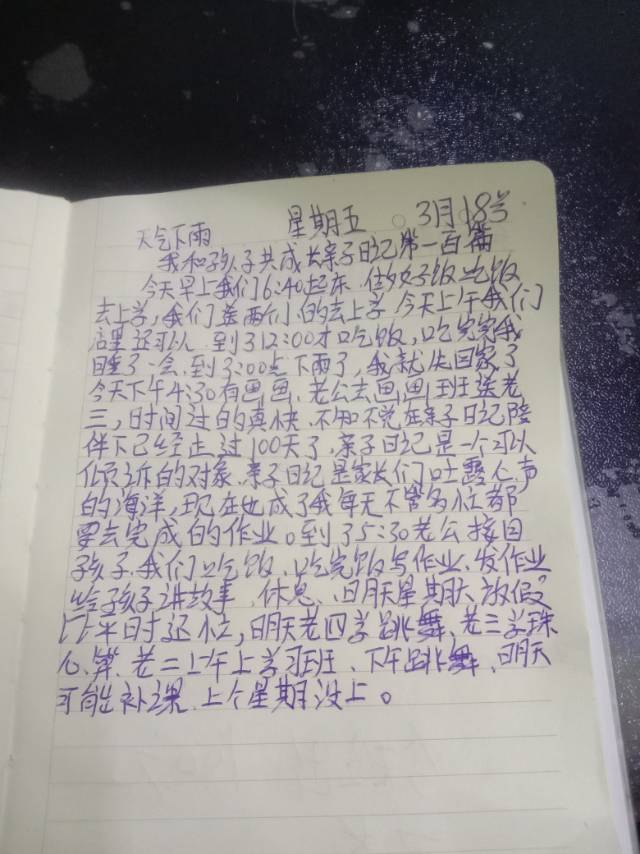 星期五 3月18号
天气下雨
我和孩子共成长亲子日记第一百篇
今天早上我们6:40起床,做好饭吃饭
去上学,我们送两们的去上学 今天上午我们
店里还可以 到了12:00才吃饭,吃完我
睡了一会,到了3:00点下雨了,我就先回家了
今天下午4:30有画画、老公去画画班送老
三,时间过的真快、不知不觉在亲子日记陪
伴下已经走过100天了、亲子日记是一个可以
倾诉的对象、亲子日记是家长们吐露心声
的海洋,现在也成了我每天不管多忙都
要去完成的作业。到了5:30老公接回
孩子、我们吃饭、吃完饭写作业、发作业
给孩子讲故事、休息、明天星期六放假
比平时还忙,明天老四学跳舞、老三学珠
心算、老二上午上学习班、下午跳舞、明天
可能补课、上个星期没上。